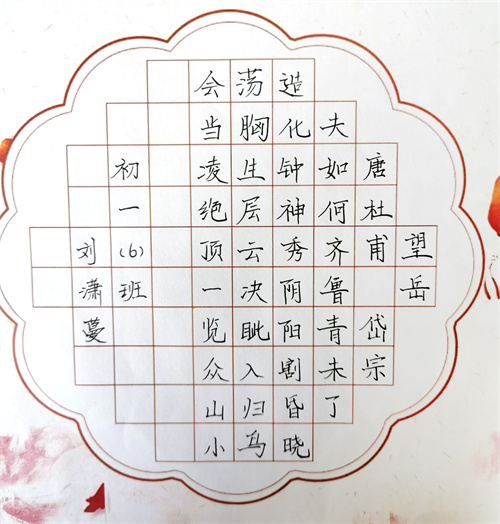 望岳
唐杜甫 岱宗
夫如何齐鲁青未了
造化钟神秀阴阳割昏晓
荡胸生层云决眦入归鸟
会当凌绝顶一览众山小
初一(6)班
刘潇蔓